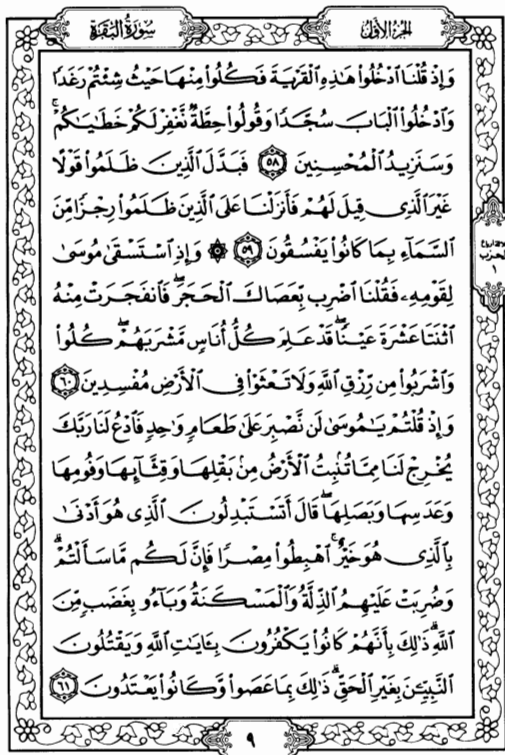 سُورَةُ البَقَرَةِ
الجُزْءُ الأَوَّلُ
وَإِذْ قُلْنَا ادْخُلُوا هَٰذِهِ الْقَرْيَةَ فَكُلُوا مِنْهَا حَيْثُ شِئْتُمْ رَغَدًا
وَادْخُلُوا الْبَابَ سُجَّدًا وَقُولُوا حِطَّةٌ نَّغْفِرْ لَكُمْ خَطَايَاكُمْ ۚ
وَسَنَزِيدُ الْمُحْسِنِينَ ٥٨ فَبَدَّلَ الَّذِينَ ظَلَمُوا قَوْلًا
غَيْرَ الَّذِي قِيلَ لَهُمْ فَأَنزَلْنَا عَلَى الَّذِينَ ظَلَمُوا رِجْزًا مِّنَ
السَّمَاءِ بِمَا كَانُوا يَفْسُقُونَ ٥٩ ۞ وَإِذِ اسْتَسْقَىٰ مُوسَىٰ
لِقَوْمِهِ فَقُلْنَا اضْرِب بِّعَصَاكَ الْحَجَرَ ۖ فَانفَجَرَتْ مِنْهُ
اثْنَتَا عَشْرَةَ عَيْنًا ۖ قَدْ عَلِمَ كُلُّ أُنَاسٍ مَّشْرَبَهُمْ ۖ كُلُوا
وَاشْرَبُوا مِن رِّزْقِ اللَّهِ وَلَا تَعْثَوْا فِي الْأَرْضِ مُفْسِدِينَ ٦٠
وَإِذْ قُلْتُمْ يَا مُوسَىٰ لَن نَّصْبِرَ عَلَىٰ طَعَامٍ وَاحِدٍ فَادْعُ لَنَا رَبَّكَ
يُخْرِجْ لَنَا مِمَّا تُنبِتُ الْأَرْضُ مِن بَقْلِهَا وَقِثَّائِهَا وَفُومِهَا
وَعَدَسِهَا وَبَصَلِهَا ۖ قَالَ أَتَسْتَبْدِلُونَ الَّذِي هُوَ أَدْنَىٰ
بِالَّذِي هُوَ خَيْرٌ ۚ اهْبِطُوا مِصْرًا فَإِنَّ لَكُم مَّا سَأَلْتُمْ ۗ
وَضُرِبَتْ عَلَيْهِمُ الذِّلَّةُ وَالْمَسْكَنَةُ وَبَاءُو بِغَضَبٍ مِّنَ
اللَّهِ ۗ ذَٰلِكَ بِأَنَّهُمْ كَانُوا يَكْفُرُونَ بِآيَاتِ اللَّهِ وَيَقْتُلُونَ
النَّبِيِّينَ بِغَيْرِ الْحَقِّ ۗ ذَٰلِكَ بِمَا عَصَوا وَّكَانُوا يَعْتَدُونَ ٦١
الحزب
١
٩